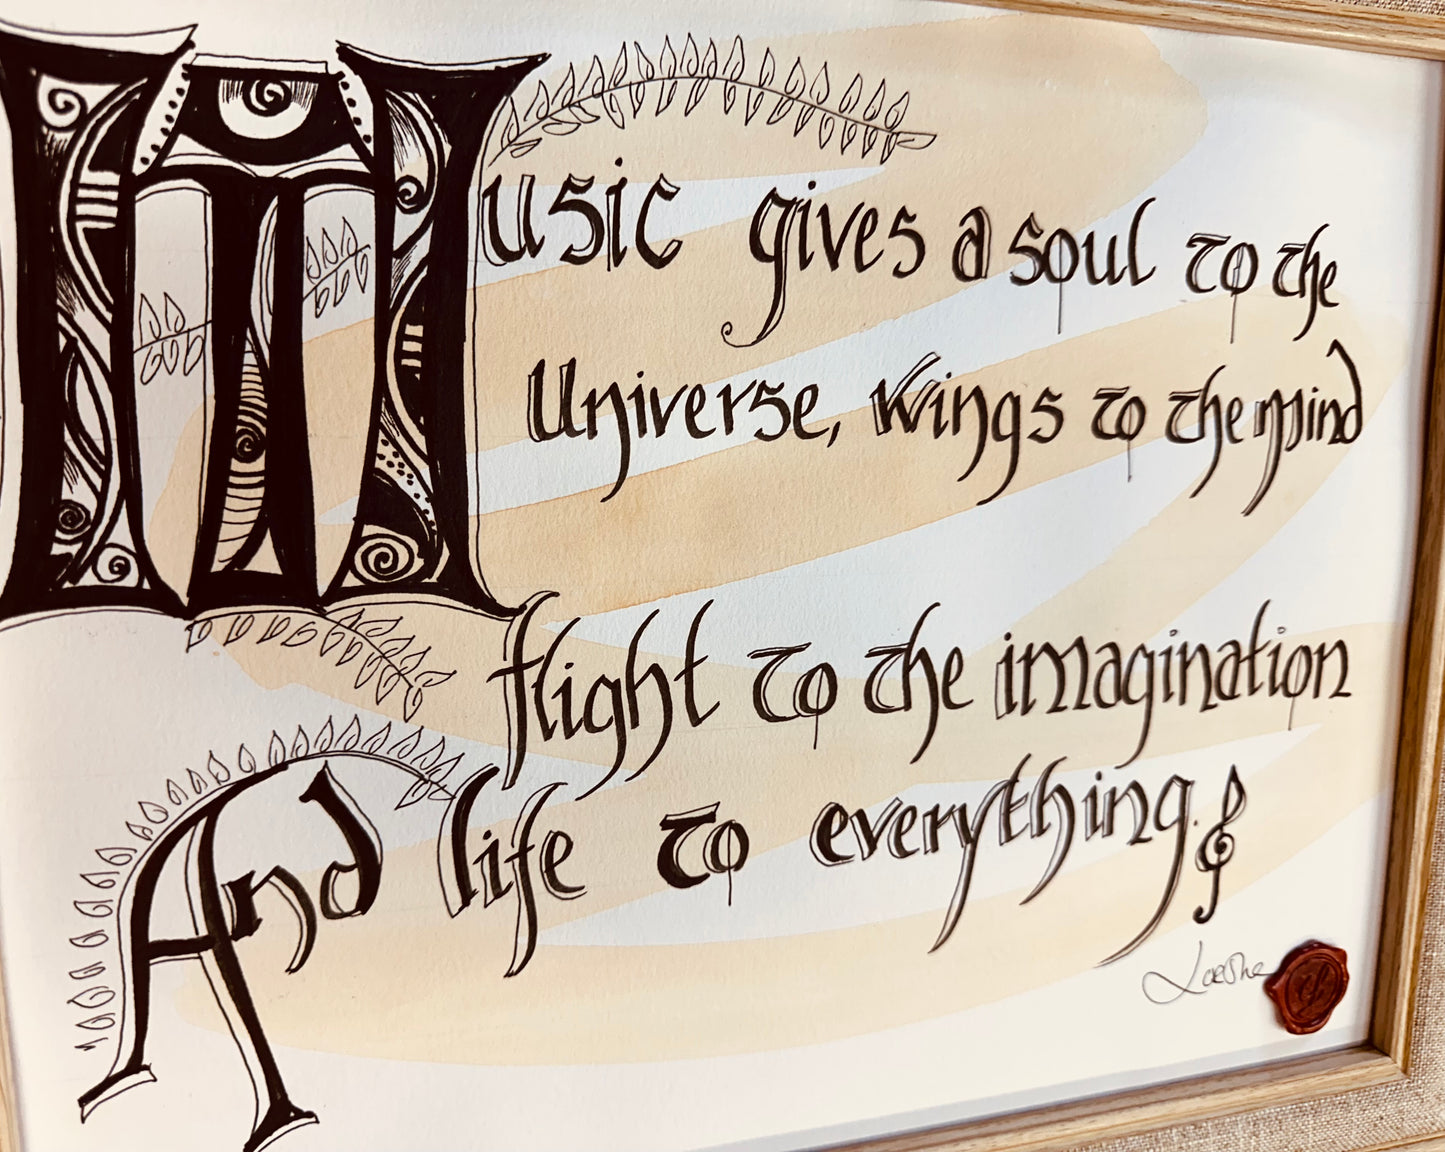 Music gives a soul to the
Universe, Wings to the mind
flight to the imagination
And life to everything.